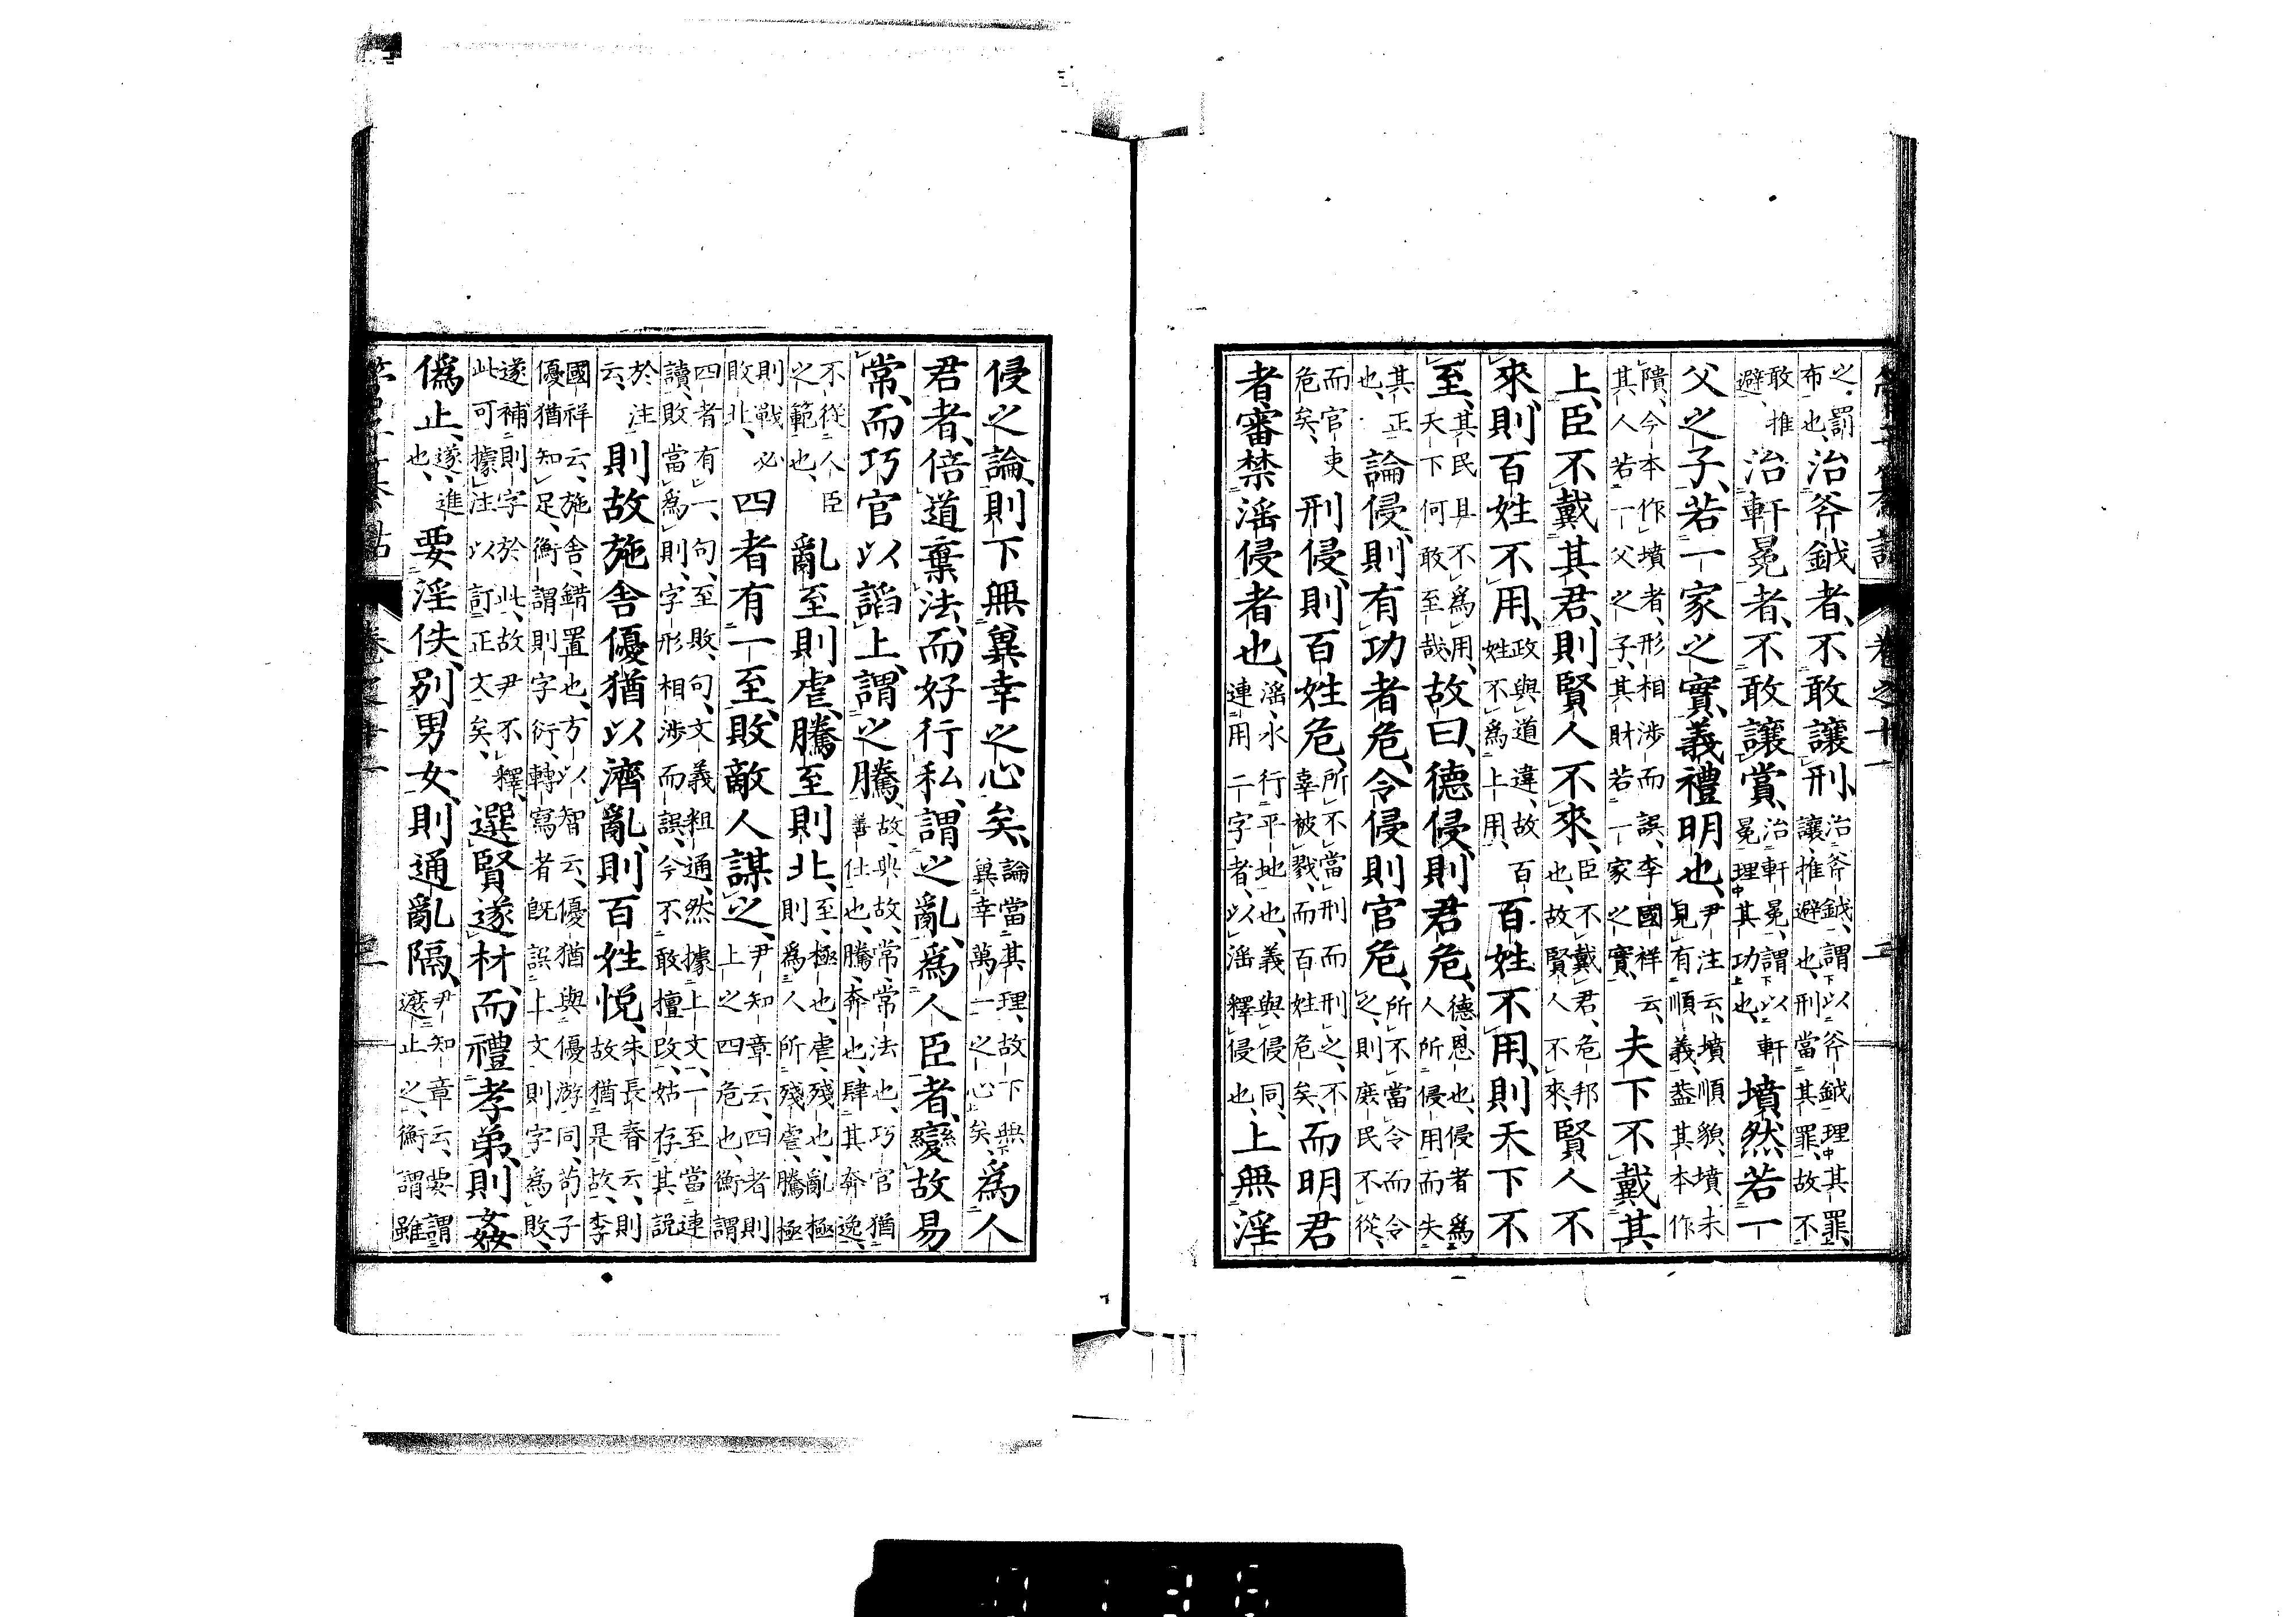 之、罰布也、治斧鉞者、不敢讓刑、治斧鉞、謂以斧鉞理其罪、讓、推避也、刑當其罪、故不
敢推避、治軒冕者、不敢讓賞、治軒冕、謂以軒冕理其功也、墳然若一
父之子、若一家之實、義禮明也、尹注云、墳順貌、墳未見有順義、蓋其本作
隤、今本作墳者、形相涉而誤、李國祥云、其人若一父之子、其財若一家之實、夫下不戴其
上、臣不戴其君、則賢人不來、臣不戴君、危邦也、故賢人不來、賢人不
來、則百姓不用、政與道違、故百姓不爲上用、百姓不用、則天下不
至、其民且不爲用、天下何敢至哉、故曰、德侵、則君危、德、恩也、侵者爲人所侵用而失
其正也、論侵、則有功者危、令侵則官危、所不當令而令之、則庶民不從、
而官吏危矣、刑侵、則百姓危、所不當刑而刑之、不辜被戮、而百姓危矣、而明君
者、審禁滛侵者也、滛、水行平地也、義與侵同、連用二字者、以滛釋侵也、上無淫
侵之論、則下無兾幸之心矣、論當其理、故下無兾幸萬一之心矣、爲人
君者、倍道棄法、而好行私、謂之亂、爲人臣者、變故易
常、而巧官以諂上、謂之騰、故、典故、常、常法也、巧官猶善仕也、騰、奔也、肆其奔逸、
不從人臣之範也、亂至則虐、騰至則北、至、極也、虐、殘也、亂極則爲人所殘虐、騰極
則戰必敗北、四者有一至、敗、敵人謀之、尹知章云、四者則上之四危也、衡謂
四者有一、句、至敗、句、文義粗通、然據上文、一至當連讀、敗當爲則、字形相涉而誤、今不敢擅改、姑存其説
於注云、則故施舍優猶以濟亂、則百姓悅、朱長春云、則故猶是故、李
國祥云、施舍、錯置也、方以智云、優猶與優游同、苟子優猶知足、衡謂則字衍、轉寫者旣誤上文則字爲敗、
遂補則字於此、故尹不釋、此可據注以訂正文矣、選賢遂材、而禮孝弟、則姦
僞止、遂、進也、要淫佚、別男女、則通亂隔、尹知章云、要謂遮止之、衡謂雖